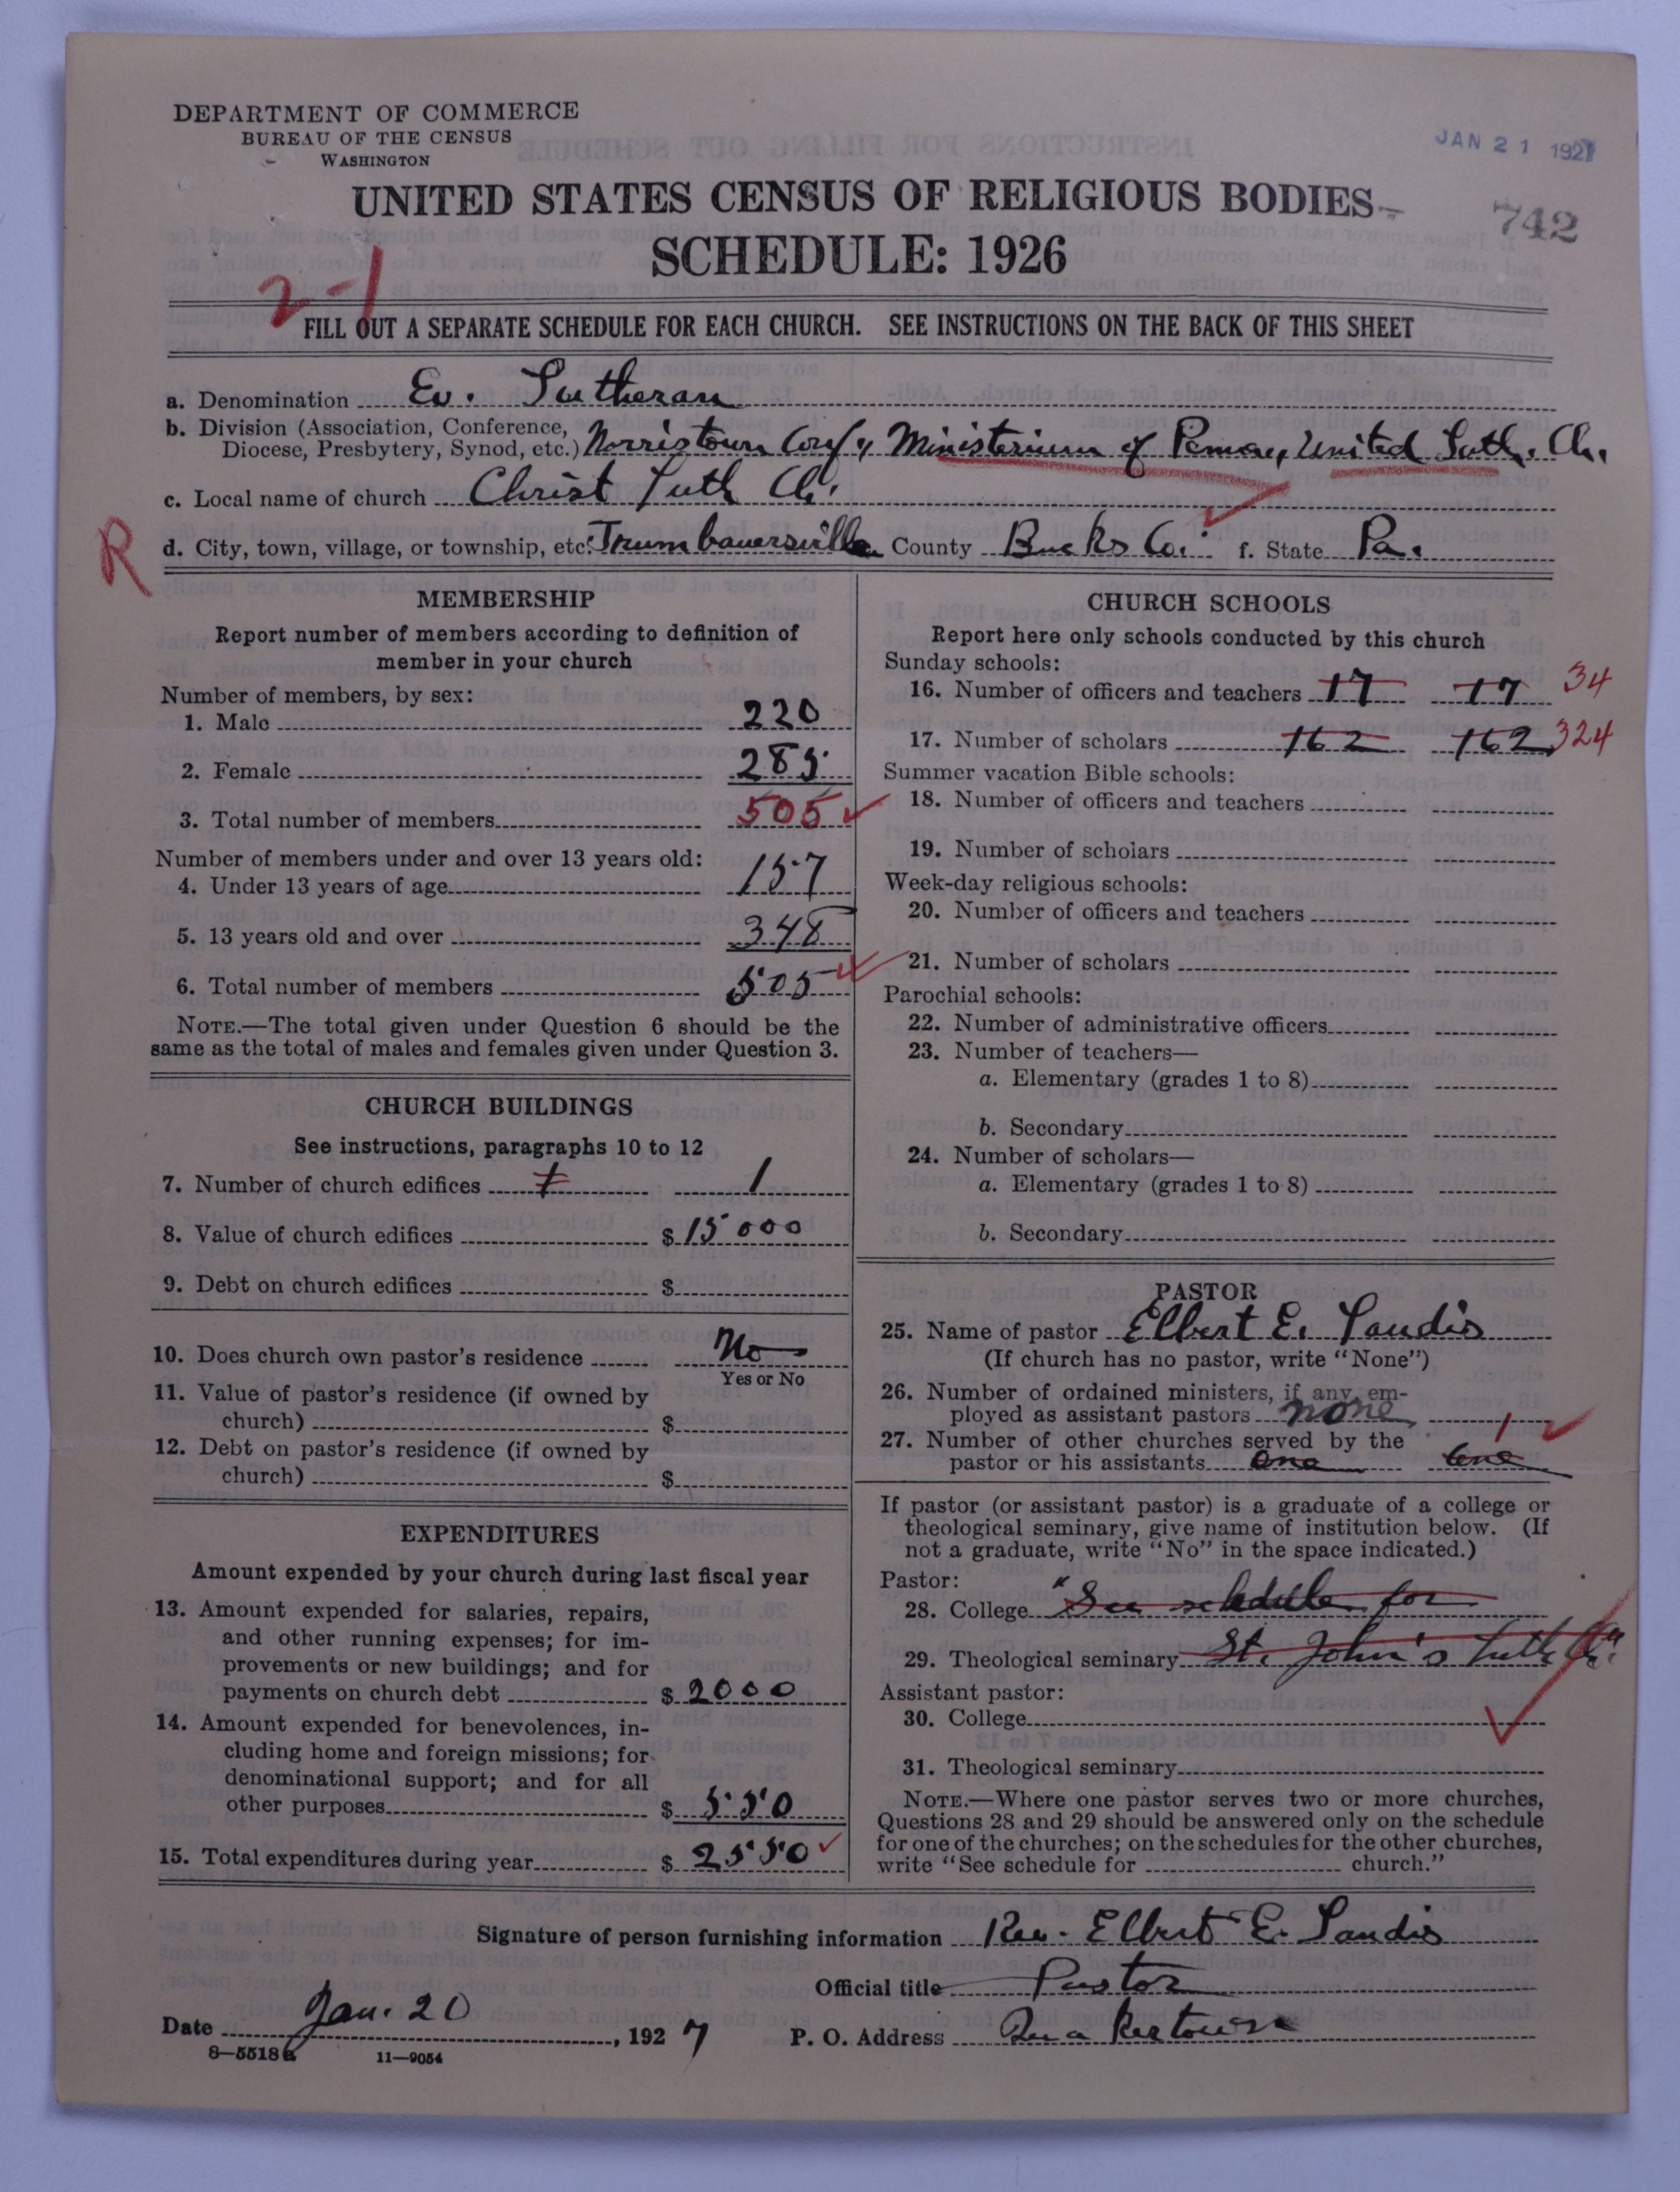 DEPARTMENT OF COMMERCE
BUREAU OF THE CENSUS
WASHINGTON
JAN 21 1927
UNITED STATES CENSUS OF RELIGIOUS BODIES
742
SCHEDULE: 1926
2-1
FILL OUT A SEPARATE SCHEDULE FOR EACH CHURCH. SEE INSTRUCTIONS ON THE BACK OF THIS SHEET
a. Denomination Ev. Lutheran
b. Division (Association, Conference, Diocese, Presbytery, Synod, etc.) Norristown Conf, Ministerium of Penna, United Luth. Ch.
c. Local name of church Christ Luth Ch.
R
d. City, town, village, or township, etc. Trumbauersville County Bucks Co. f. State Pa.
MEMBERSHIP
Report number of members according to definition of
member in your church
Number of members, by sex:
1. Male 220
2. Female 285
3. Total number of members 505
Number of members under and over 13 years old:
4. Under 13 years of age 157
5. 13 years old and over 348
6. Total number of members 505
NOTE.—The total given under Question 6 should be the
same as the total of males and females given under Question 3.
CHURCH BUILDINGS
See instructions, paragraphs 10 to 12
7. Number of church edifices 1 1
8. Value of church edifices $ 15000
9. Debt on church edifices $
10. Does church own pastor's residence No
Yes or No
11. Value of pastor's residence (if owned by
church) $
12. Debt on pastor's residence (if owned by
church) $
EXPENDITURES
Amount expended by your church during last fiscal year
13. Amount expended for salaries, repairs,
and other running expenses; for im-
provements or new buildings; and for
payments on church debt $ 2000
14. Amount expended for benevolences, in-
cluding home and foreign missions; for
denominational support; and for all
other purposes $ 550
15. Total expenditures during year $ 2550
CHURCH SCHOOLS
Report here only schools conducted by this church
Sunday schools:
16. Number of officers and teachers 17 17 34
17. Number of scholars 162 162 324
Summer vacation Bible schools:
18. Number of officers and teachers
19. Number of scholars
Week-day religious schools:
20. Number of officers and teachers
21. Number of scholars
Parochial schools:
22. Number of administrative officers
23. Number of teachers—
a. Elementary (grades 1 to 8)
b. Secondary
24. Number of scholars—
a. Elementary (grades 1 to 8)
b. Secondary
PASTOR
25. Name of pastor Elbert E. Landis
(If church has no pastor, write "None")
26. Number of ordained ministers, if any, em-
ployed as assistant pastors none
27. Number of other churches served by the 1
pastor or his assistants one one
If pastor (or assistant pastor) is a graduate of a college or
theological seminary, give name of institution below. (If
not a graduate, write "No" in the space indicated.)
Pastor:
28. College "See schedule for
29. Theological seminary St. John's Luth Ch."
Assistant pastor:
30. College
31. Theological seminary
NOTE.—Where one pastor serves two or more churches,
Questions 28 and 29 should be answered only on the schedule
for one of the churches; on the schedules for the other churches,
write "See schedule for church."
Signature of person furnishing information Rev. Elbert E. Landis
Official title Pastor
Date Jan. 20, 1927 P. O. Address Quakertown
8—5518a 11—9054